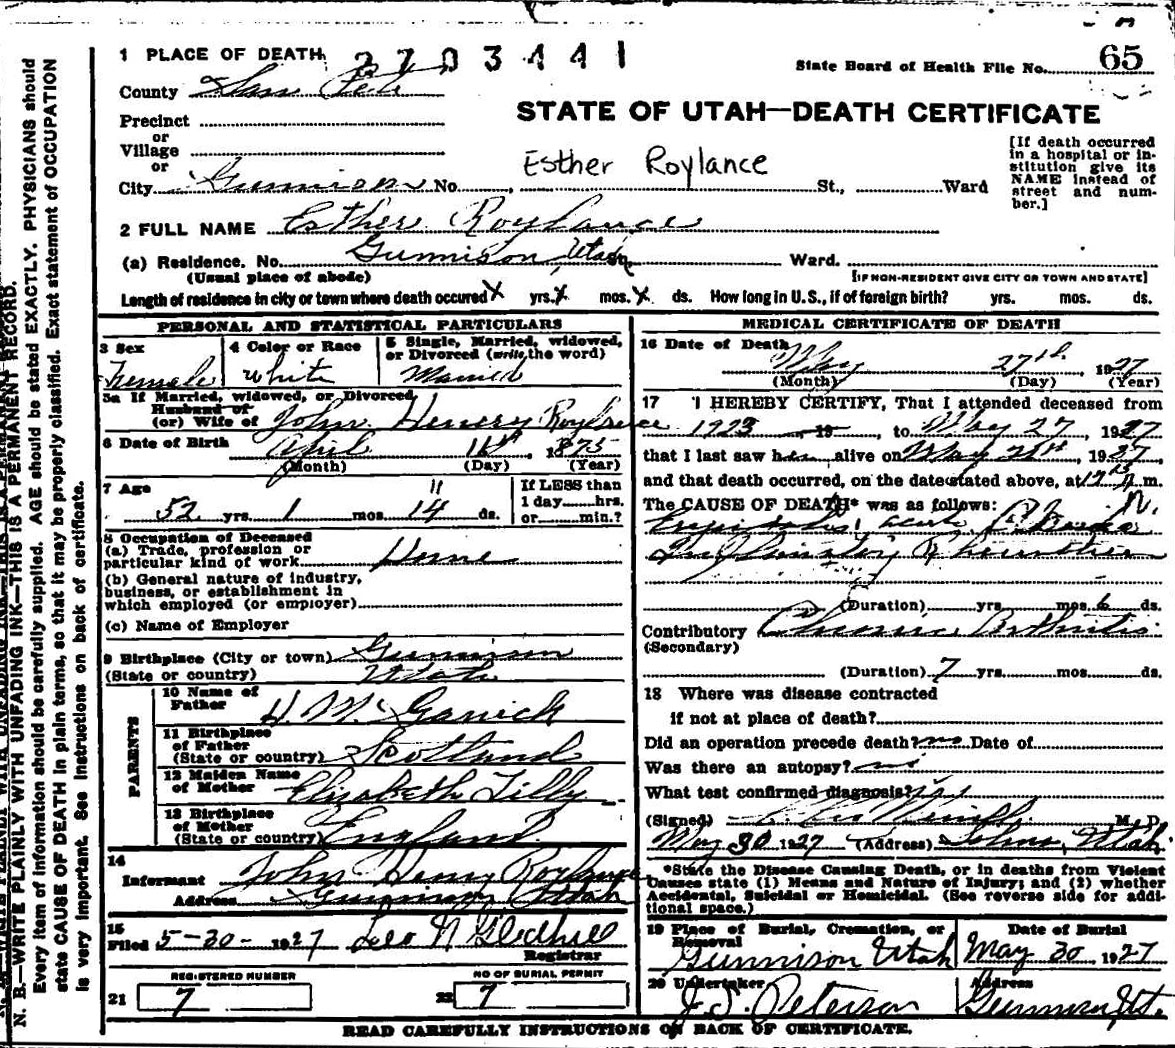 1 PLACE OF DEATH 2703441
State Board of Health File No. 65
County San Pete
STATE OF UTAH—DEATH CERTIFICATE
Precinct
or
Village
or
City Gunnison No. , Esther Roylance St., Ward
[If death occurred
in a hospital or in-
stitution give its
NAME instead of
street and num-
ber.]
2 FULL NAME Esther Roylance
(a) Residence. No. Gunnison, Utah Ward.
(Usual place of abode)
[IF NON-RESIDENT GIVE CITY OR TOWN AND STATE]
Length of residence in city or town where death occured X yrs. X mos. X ds. How long in U.S., if of foreign birth? yrs. mos. ds.
PERSONAL AND STATISTICAL PARTICULARS
3 Sex
Female
4 Color or Race
White
5 Single, Married, widowed,
or Divorced (write the word)
Married
5a If Married, widowed, or Divorced
Husband of
(or) Wife of John Henery Roylance
6 Date of Birth April 16th, 1875
(Month) (Day) (Year)
7 Age
52 yrs. 1 mos. 11 14 ds.
If LESS than
1 day......hrs.
or......min.?
8 Occupation of Deceased
(a) Trade, profession or
particular kind of work Home
(b) General nature of industry,
business, or establishment in
which employed (or employer)
(c) Name of Employer
9 Birthplace (City or town) Gunnison
(State or country) Utah
PARENTS
10 Name of
Father H. M.
11 Birthplace
of Father
(State or country) Scotland
12 Maiden Name
of Mother Elizabeth Tilly
13 Birthplace
of Mother
(State or country) England
14
Informant John Henry Roylance
Address Gunnison Utah
15
Filed 5-30-1927 Leo N Gledhill
Registrar
REGISTERED NUMBER
21 7
NO OF BURIAL PERMIT
22 7
MEDICAL CERTIFICATE OF DEATH
16 Date of Death
May 27th, 1927
(Month) (Day) (Year)
17 I HEREBY CERTIFY, That I attended deceased from
1923, 19 , to May 27, 1927
that I last saw her alive on May 26th, 1927,
and that death occurred, on the date stated above, at 12 m.
The CAUSE OF DEATH* was as follows:
acute
(Duration) yrs. mos. 6 ds.
Contributory Chronic Arthritis
(Secondary)
(Duration) 7 yrs. mos. ds.
18 Where was disease contracted
if not at place of death?
Did an operation precede death? no Date of
Was there an autopsy? no
What test confirmed diagnosis?
(Signed) M. D.
May 30 1927 (Address) Salina, Utah
*State the Disease Causing Death, or in deaths from Violent
Causes state (1) Means and Nature of Injury; and (2) whether
Accidental, Suicidal or Homicidal. (See reverse side for addi-
tional space.)
19 Place of Burial, Cremation, or
Removal
Gunnison Utah
Date of Burial
May 30 1927
20 Undertaker
J. S. Peterson
Address
Gunnison, Ut.
READ CAREFULLY INSTRUCTIONS ON BACK OF CERTIFICATE.
N. B.—WRITE PLAINLY WITH UNFADING INK—THIS IS A PERMANENT RECORD.
Every item of information should be carefully supplied. AGE should be stated EXACTLY. PHYSICIANS should
state CAUSE OF DEATH in plain terms, so that it may be properly classified. Exact statement of OCCUPATION
is very important. See Instructions on back of certificate.